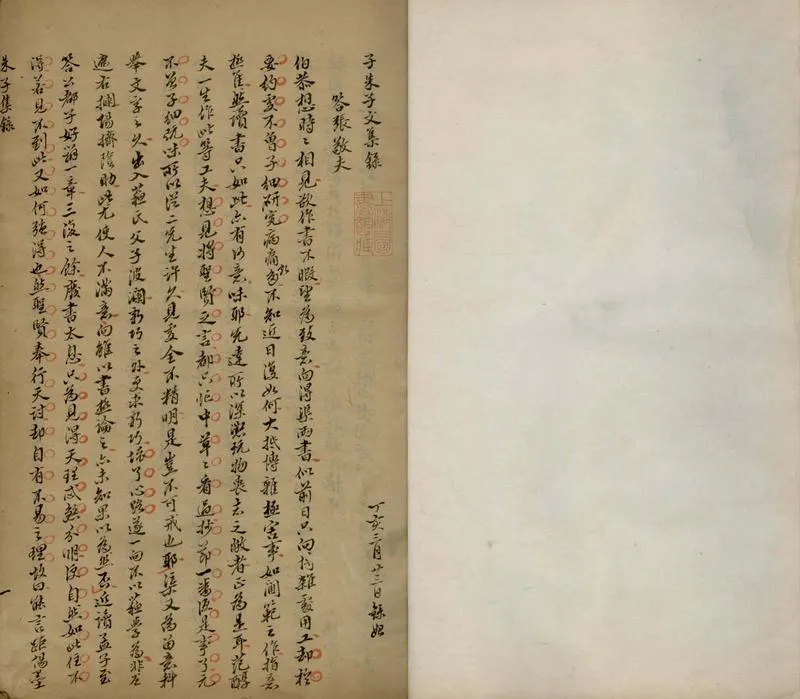 丁亥二月廿三日錄起
子朱子文集錄
答張敬夫
上海圖書館藏
伯恭想時〻相見欲作書不暇望為致意向得渠兩書似前日只向博雜處用工却於
要約處不曾子細研究病痛頗多不知近日復如何大抵博雜極害事如閫範之作指意
極佳然讀書只如此亦有何意味耶先達所以深懲玩物喪志之敝者正為是耳范醇
夫一生作此等工夫想見將聖賢之言都只忙中草〻看過抄節一番便是事了元
不曾子細玩味所以從二先生許久見處全不精明是豈不可戒也耶渠又為留意科
舉文字之久出入蘇氏父子波瀾新巧之外更求新巧壞了心路遂一向不以蘇學為非左
遮右攔陽擠陰助此尤使人不滿意向雖以書極論之亦未知果以為然否近讀孟子至
答公都子好辯一章三復之餘廢書太息只為見得天理忒煞分明便自然如此住不
得若見不到此又如何强得也然聖賢奉行天討却自有不易之理故曰能言距楊墨
朱子集錄
一